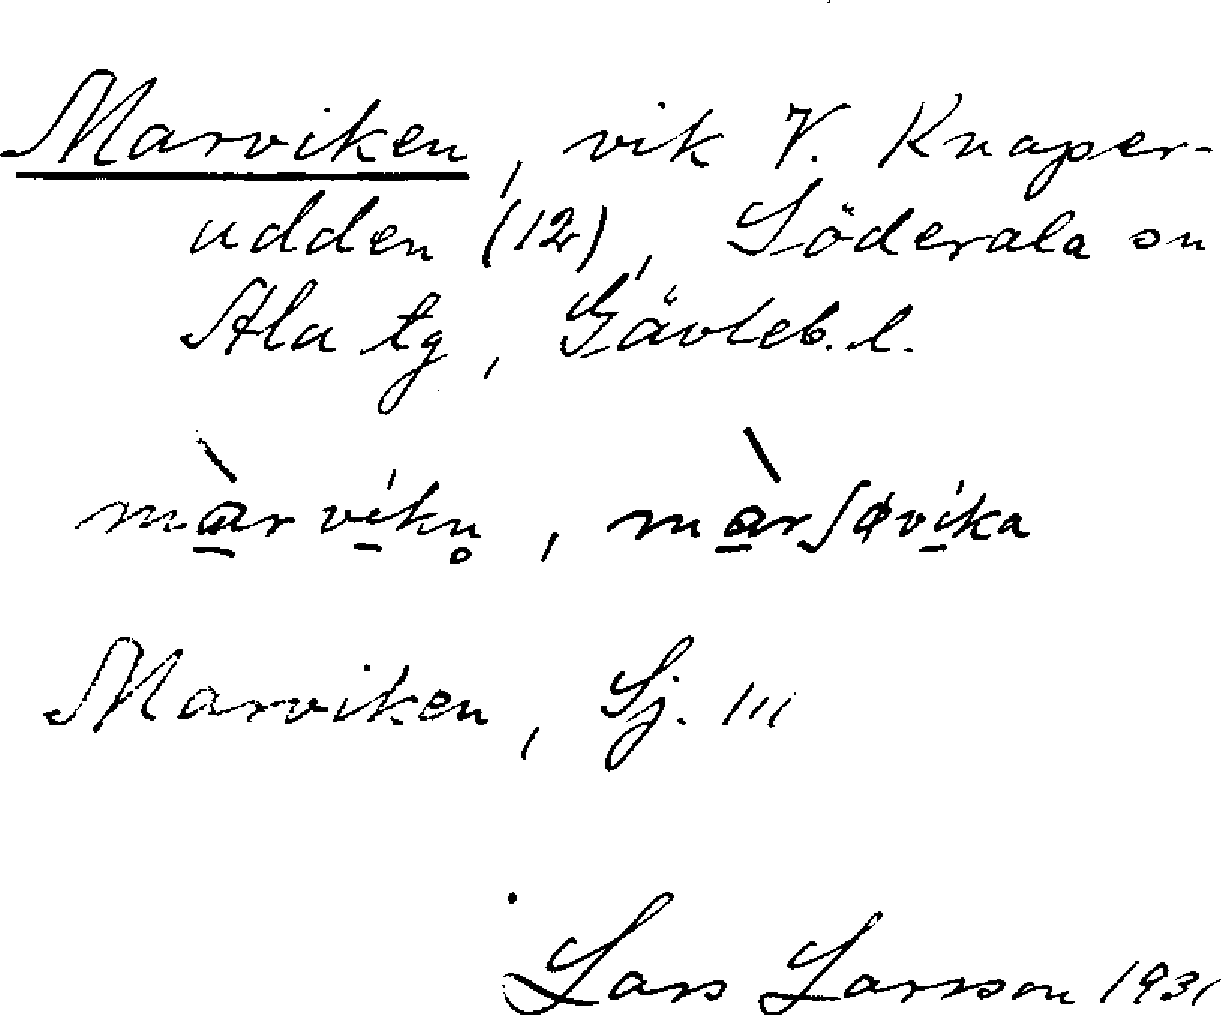 Marviken, vik V. Knaper-
udden (12), Söderala sn
Ala tg, Gävleb. l.
màrvíkn̥, màrʃøvíka
Marviken, Sj. III
Lars Larsson 1931